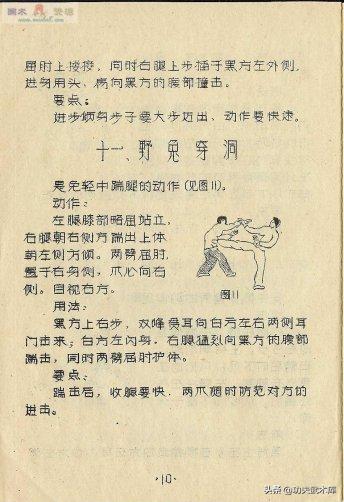 屈肘上接搂，同时右腿上步插于黑方左外侧，
进身用头、肩向黑方的腹部撞击。
要点：
进步倾身步子要大步迈出、动作要快速。
十一、野兔穿洞
是兔轻中踹腿的动作(见图11)。
动作：
左腿膝部略屈站立，
右腿朝右侧方踹出上体
朝左侧方倾。两臂屈肘，
置于右身侧，爪心向右
侧。目视右方。
图11
用法：
黑方上右步，双峰贯耳向白方左右两侧耳
门击来；白方左闪身，右腿猛烈向黑方的腹部
踹击，同时两臂屈肘护体。
要点：
踹击后，收腿要快，两爪随时防范对方的
进击。
·10·
头条@功夫武术库